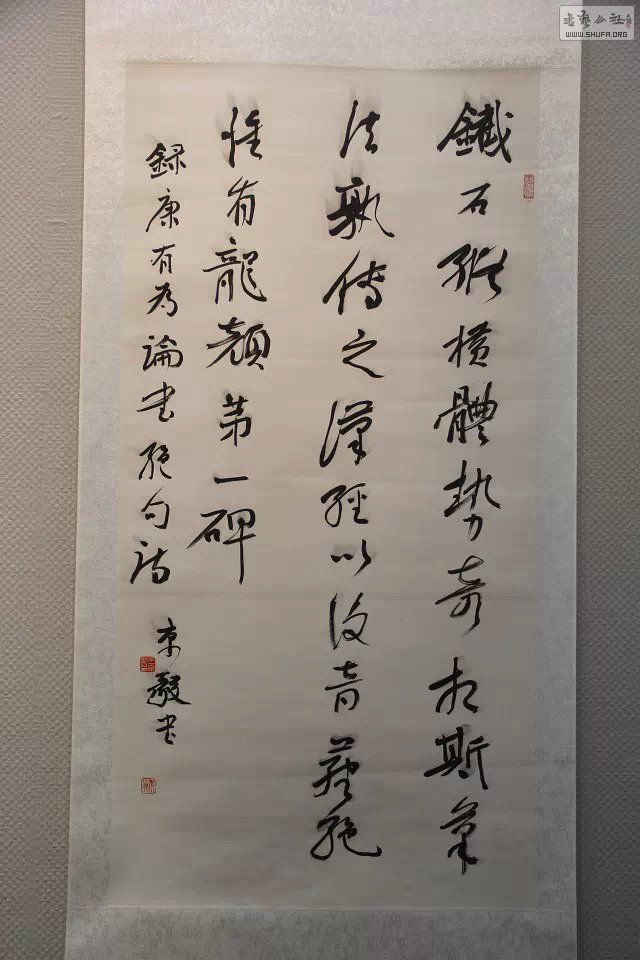 鐵石縱橫體勢奇相斯筆
法孰傳之漢經以後音塵絕
惟有龍顏第一碑
錄康有為論書絕句詩
毅書
書藝公社
WWW.SHUFA.ORG